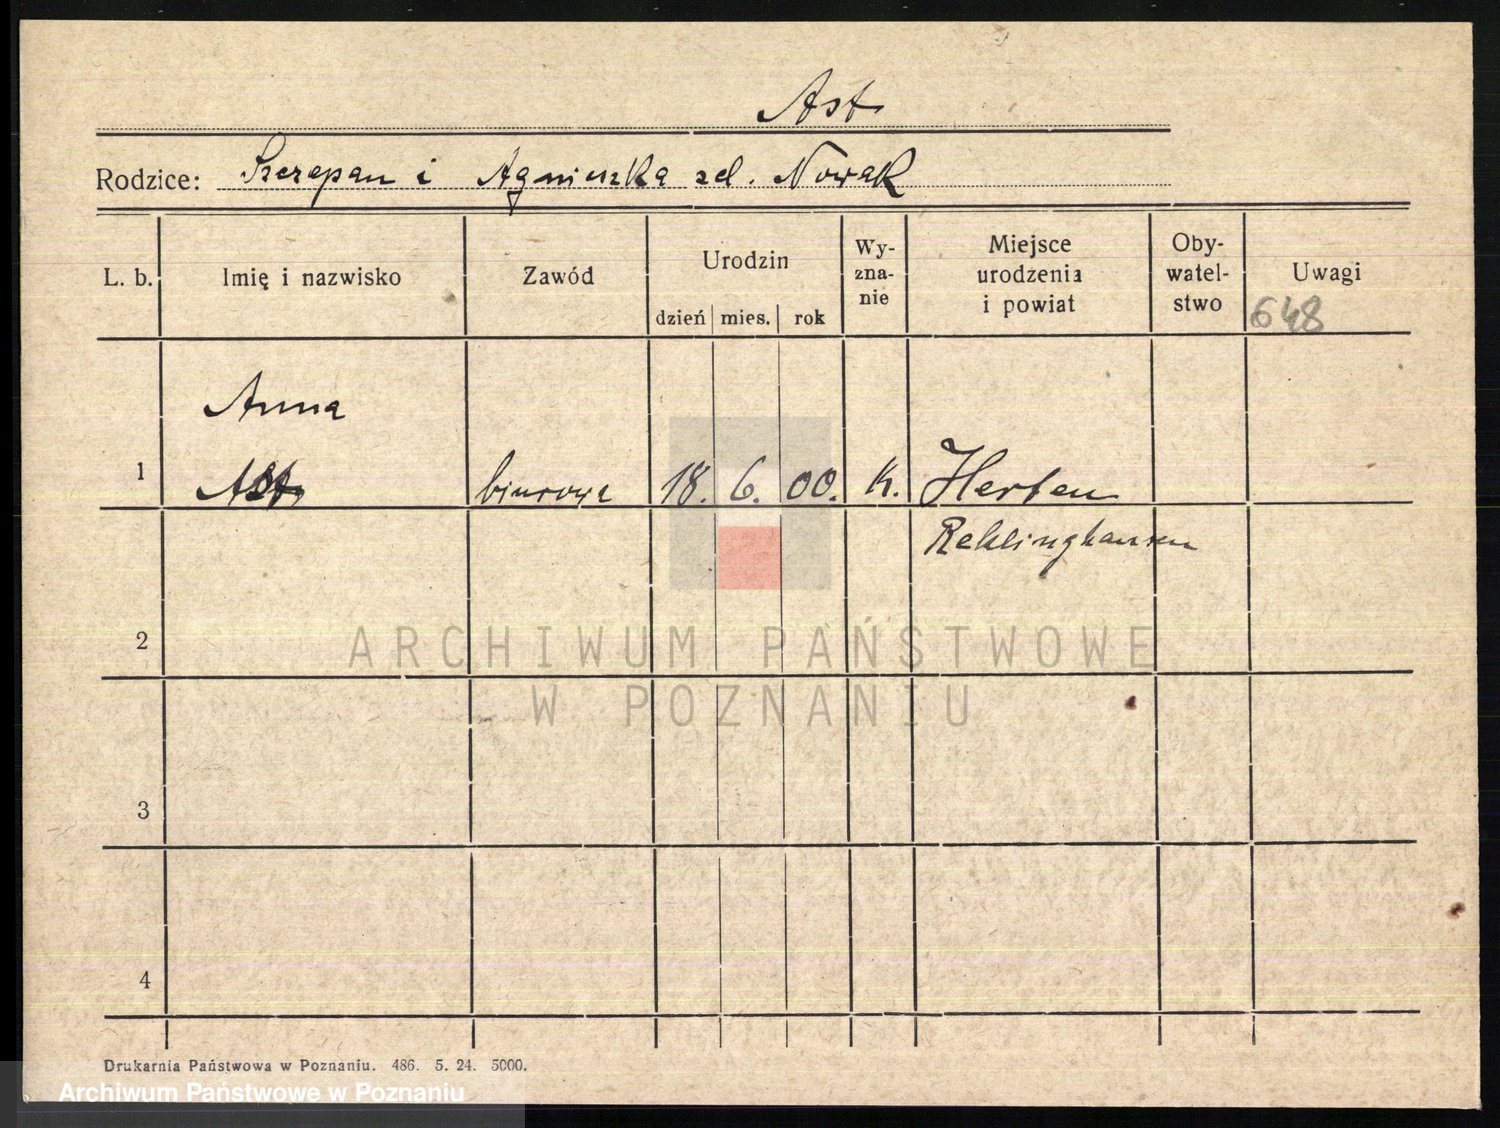 Ast
Rodzice: Szczepan i Agnieszka zd. Nowak
L. b. Imię i nazwisko Zawód Urodzin dzień mies. rok Wy-zna-nie Miejsce urodzenia i powiat Oby-watel-stwo Uwagi
648
Anna
1 Ast biurowa 18. 6. 00. k. Herten
Reklinghausen
2
ARCHIWUM PAŃSTWOWE
W POZNANIU
3
4
Drukarnia Państwowa w Poznaniu. 486. 5. 24. 5000.
Archiwum Państwowe w Poznaniu